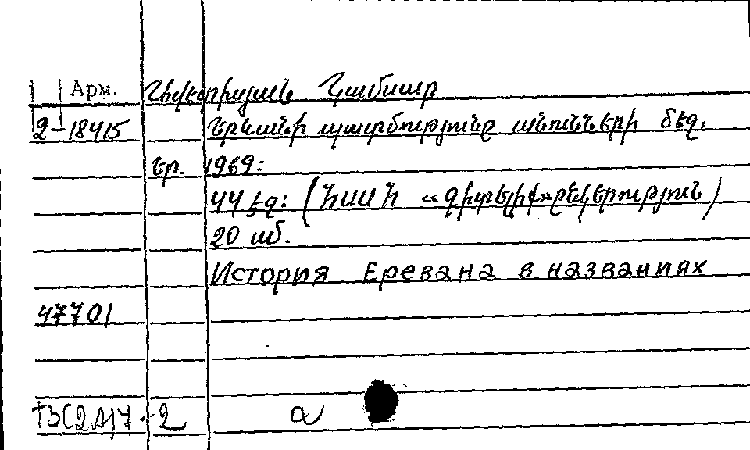 Арм. Ղևկարիսյան Կամսար
2-18415 Երևանի պատմությունը անունների մեջ.
Եր. 1969:
44 էջ: (ՀՍՍՀ «Գիտելիք» ընկերություն)
20 սմ.
История Еревана в названиях
47701
T3(2А)7 2 а